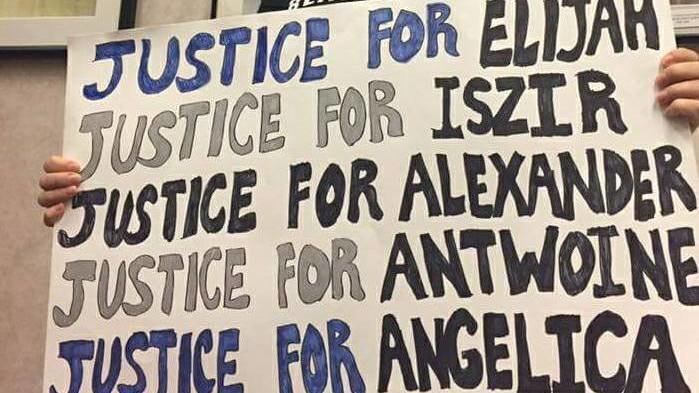 JUSTICE FOR ELIJAH
JUSTICE FOR ISZIR
JUSTICE FOR ALEXANDER
JUSTICE FOR ANTWOINE
JUSTICE FOR ANGELICA